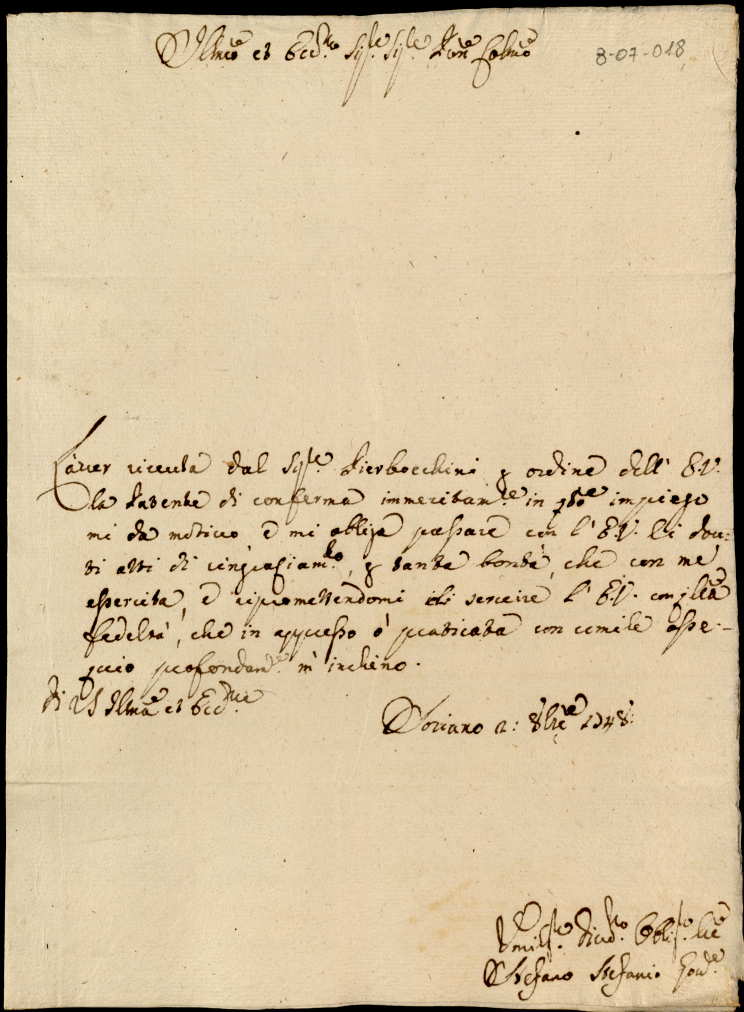 Illmo et Ecc.mo Sig.re Sig.re Pron Colmo
8-07-018
L'aver riceuta dal Sig.re Pierbecchini p ordine dell' E.V.
la Patente di conferma immeritam.te in q.sto impiego
mi da motivo e mi obliga passare con l' E.V. li dov:
ti atti di ringratiam.to, p tanta bontà, che con me
essercita, e ripromettendomi di servire l' E.V. con q.lla
fedeltà, che in appresso ò praticata con umile osse-
quio profondam.te m' inchino.
Di V.S. Illma et Ecc.ma
Soriano 2: 8bre 1748:
Umil.mo Devot.mo Oblig.mo Sre
Stefano Stefanio Gov.e